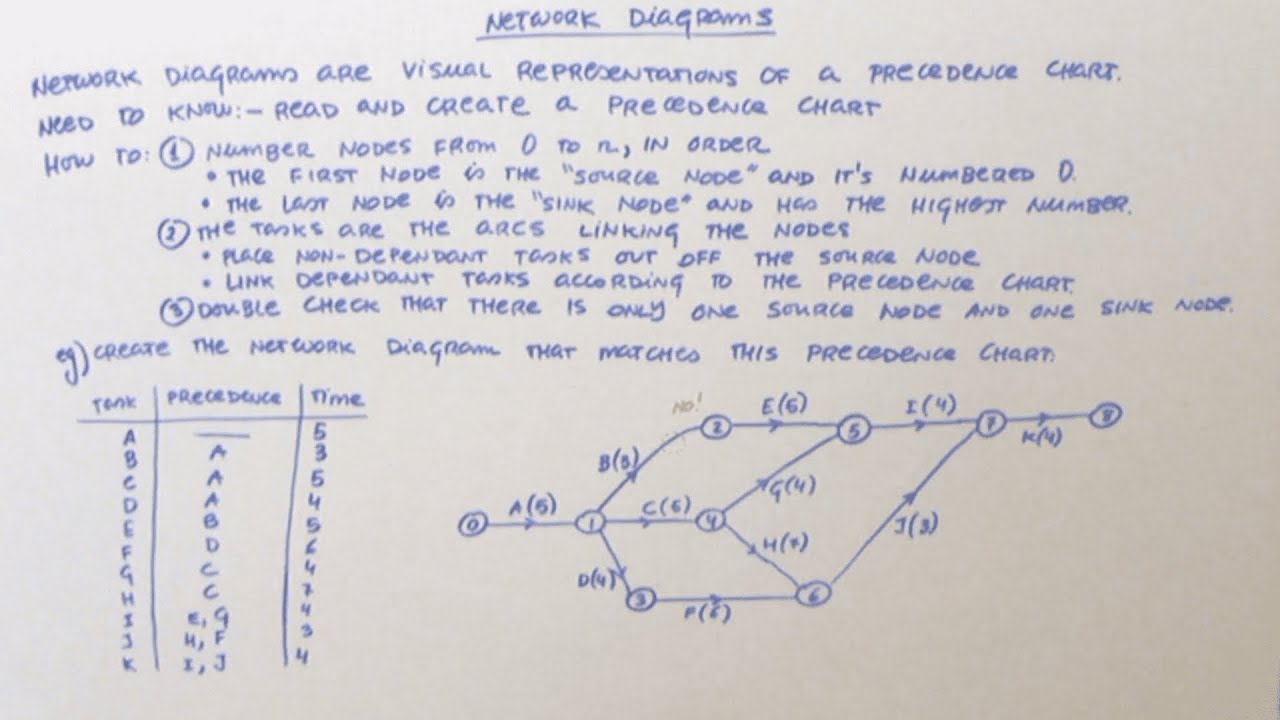 NETWORK DIAGRAMS
NETWORK DIAGRAMS ARE VISUAL REPRESENTATIONS OF A PRECEDENCE CHART.
NEED TO KNOW:- READ AND CREATE A PRECEDENCE CHART
HOW TO: ① NUMBER NODES FROM 0 TO n, IN ORDER
• THE FIRST NODE IS THE "SOURCE NODE" AND IT'S NUMBERED 0.
• THE LAST NODE IS THE "SINK NODE" AND HAS THE HIGHEST NUMBER.
② THE TASKS ARE THE ARCS LINKING THE NODES
• PLACE NON-DEPENDANT TASKS OUT OFF THE SOURCE NODE
• LINK DEPENDANT TASKS ACCORDING TO THE PRECEDENCE CHART.
③ DOUBLE CHECK THAT THERE IS ONLY ONE SOURCE NODE AND ONE SINK NODE.
eg) CREATE THE NETWORK DIAGRAM THAT MATCHES THIS PRECEDENCE CHART.
TASK PRECEDENCE TIME
A — 5
B A 3
C A 5
D A 4
E B 5
F D 6
G C 4
H C 7
I E, G 4
J H, F 3
K I, J 4
NO!
E(5)
I(4)
2
5
7
8
K(4)
B(3)
G(4)
A(5)
C(5)
0
1
4
J(3)
H(7)
D(4)
3
6
F(6)